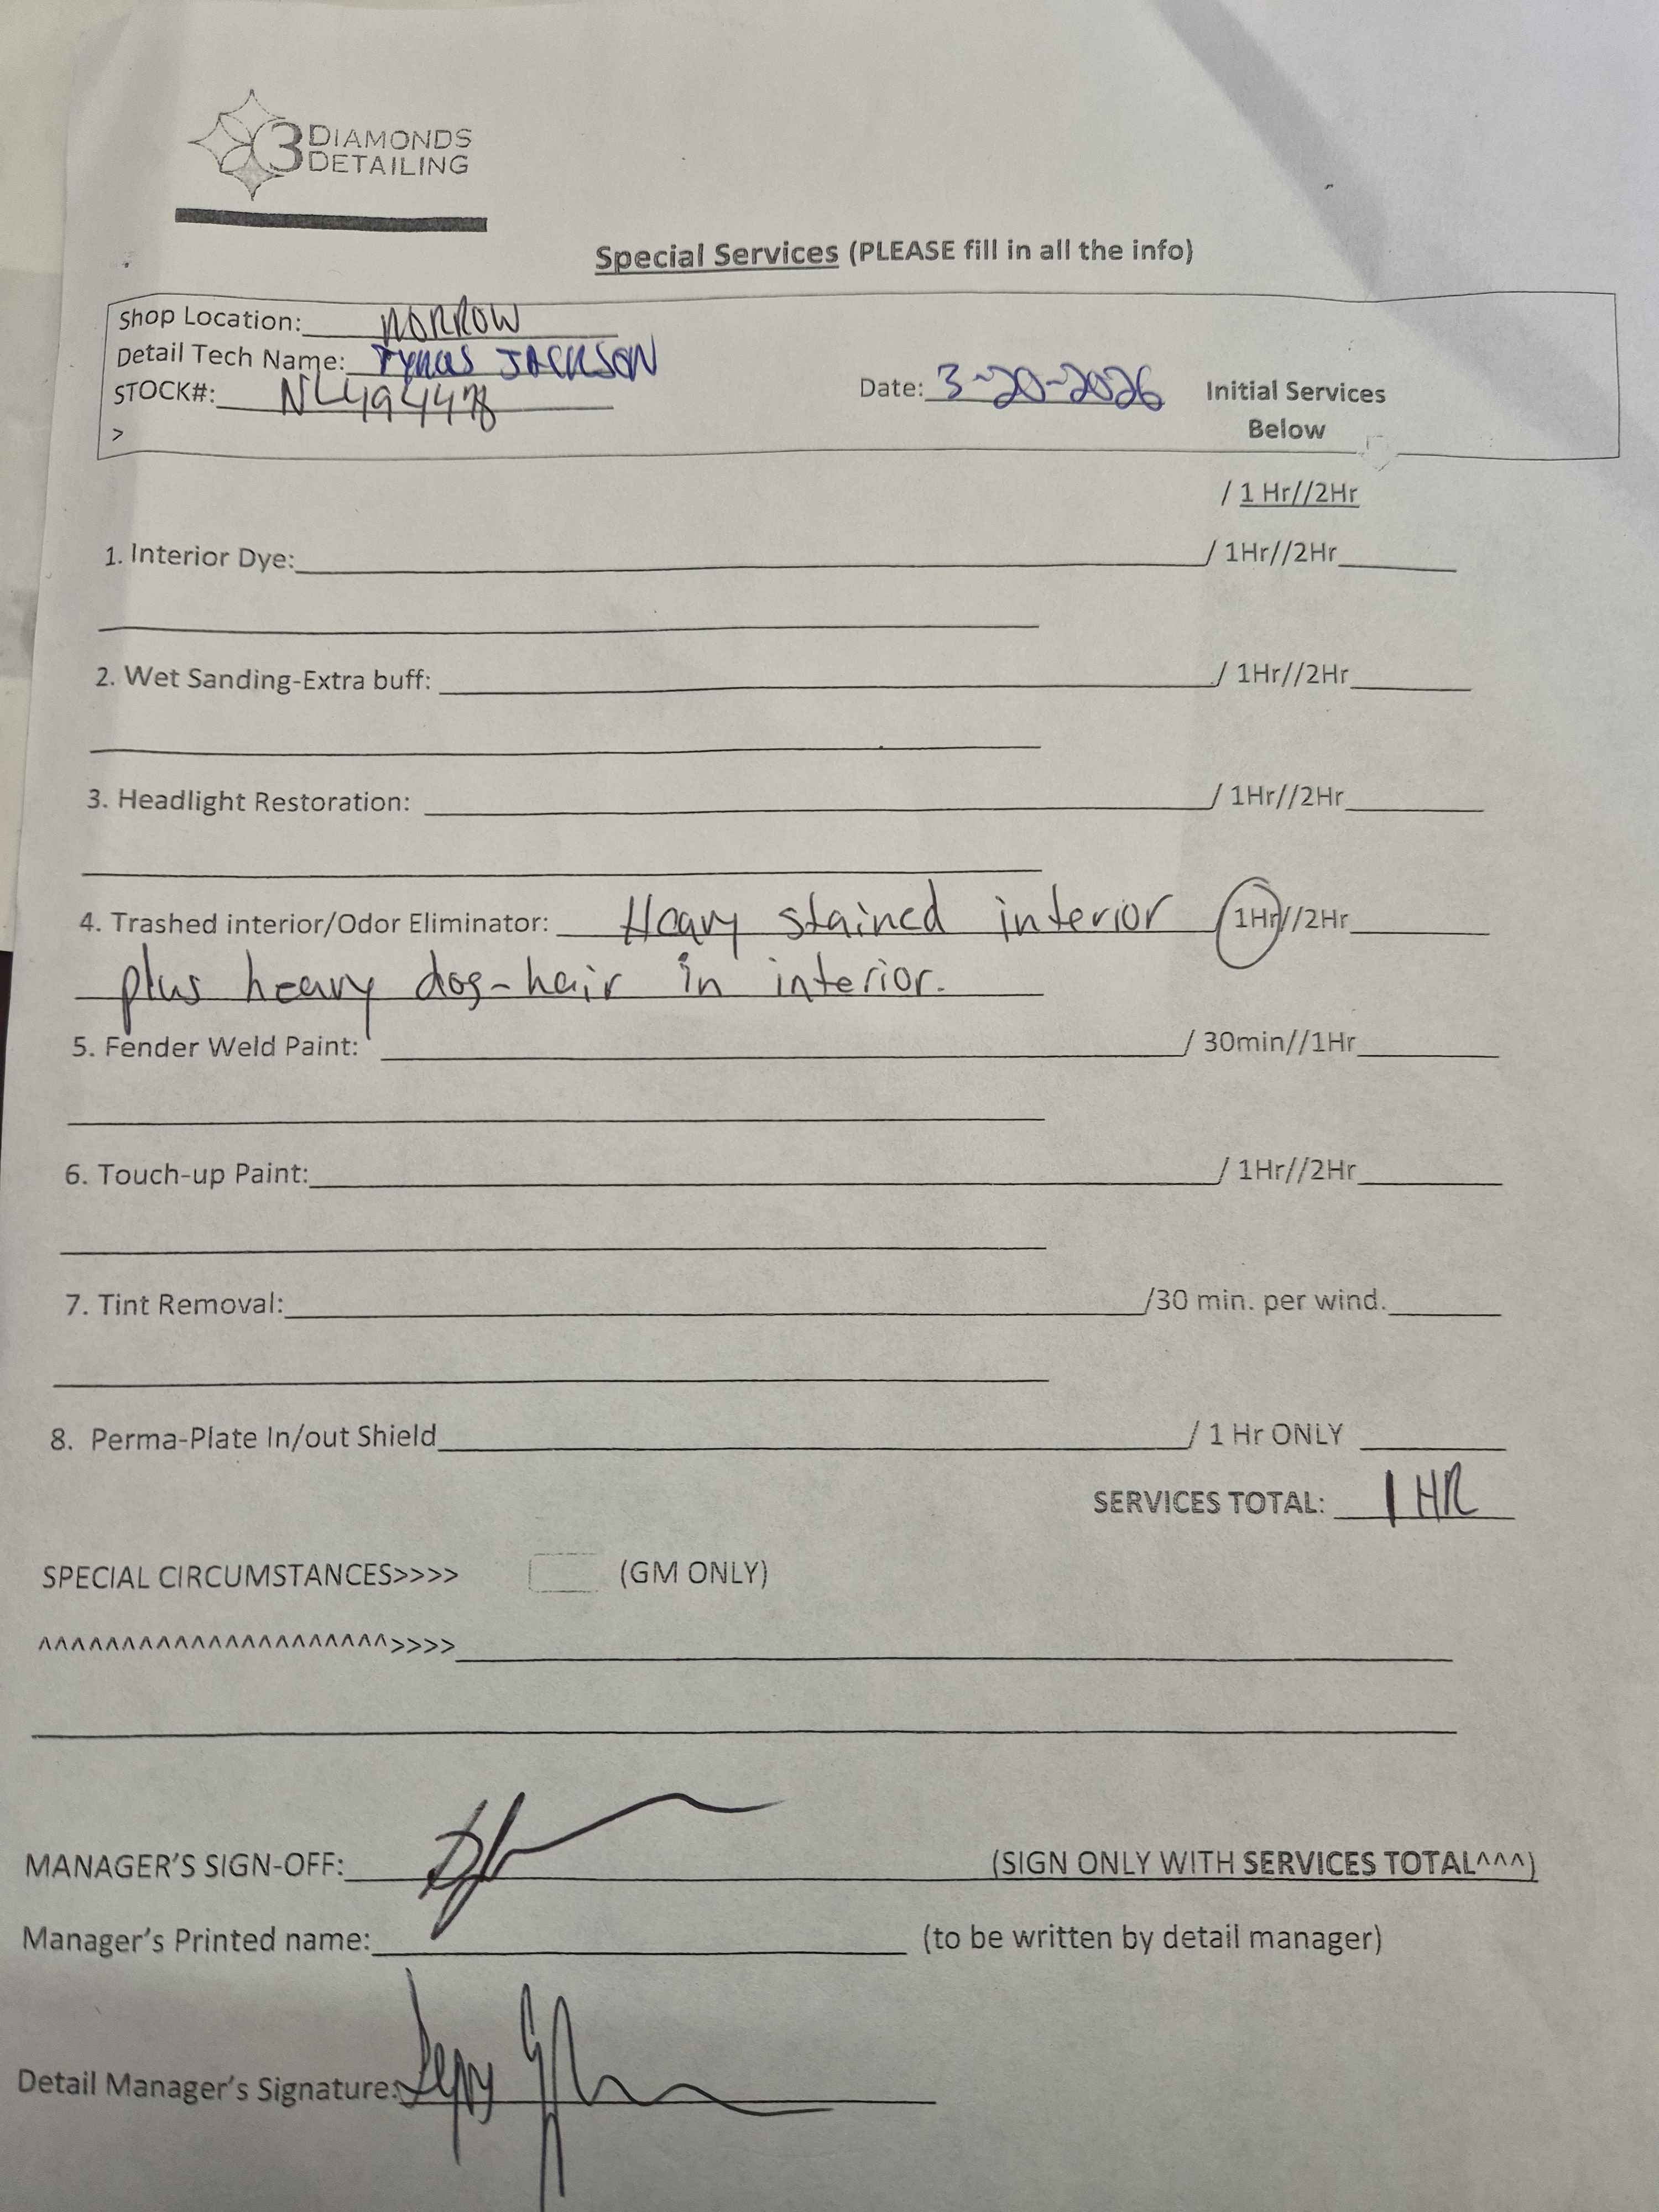 3 DIAMONDS
DETAILING
Special Services (PLEASE fill in all the info)
Shop Location: MORROW
Detail Tech Name: JACKSON
STOCK#:
Date: 3-20-2026 Initial Services
Below
>
/ 1 Hr//2Hr
1. Interior Dye: / 1Hr//2Hr
2. Wet Sanding-Extra buff: / 1Hr//2Hr
3. Headlight Restoration: / 1Hr//2Hr
4. Trashed interior/Odor Eliminator: Heavy stained interior 1Hr//2Hr
plus heavy dog-hair in interior.
5. Fender Weld Paint: / 30min//1Hr
6. Touch-up Paint: / 1Hr//2Hr
7. Tint Removal: /30 min. per wind.
8. Perma-Plate In/out Shield / 1 Hr ONLY
SERVICES TOTAL: 1 HR
SPECIAL CIRCUMSTANCES>>>> (GM ONLY)
^^^^^^^^^^^^^^^^^^^^^>>>>
MANAGER'S SIGN-OFF: (SIGN ONLY WITH SERVICES TOTAL^^^)
Manager's Printed name: (to be written by detail manager)
Detail Manager's Signature: